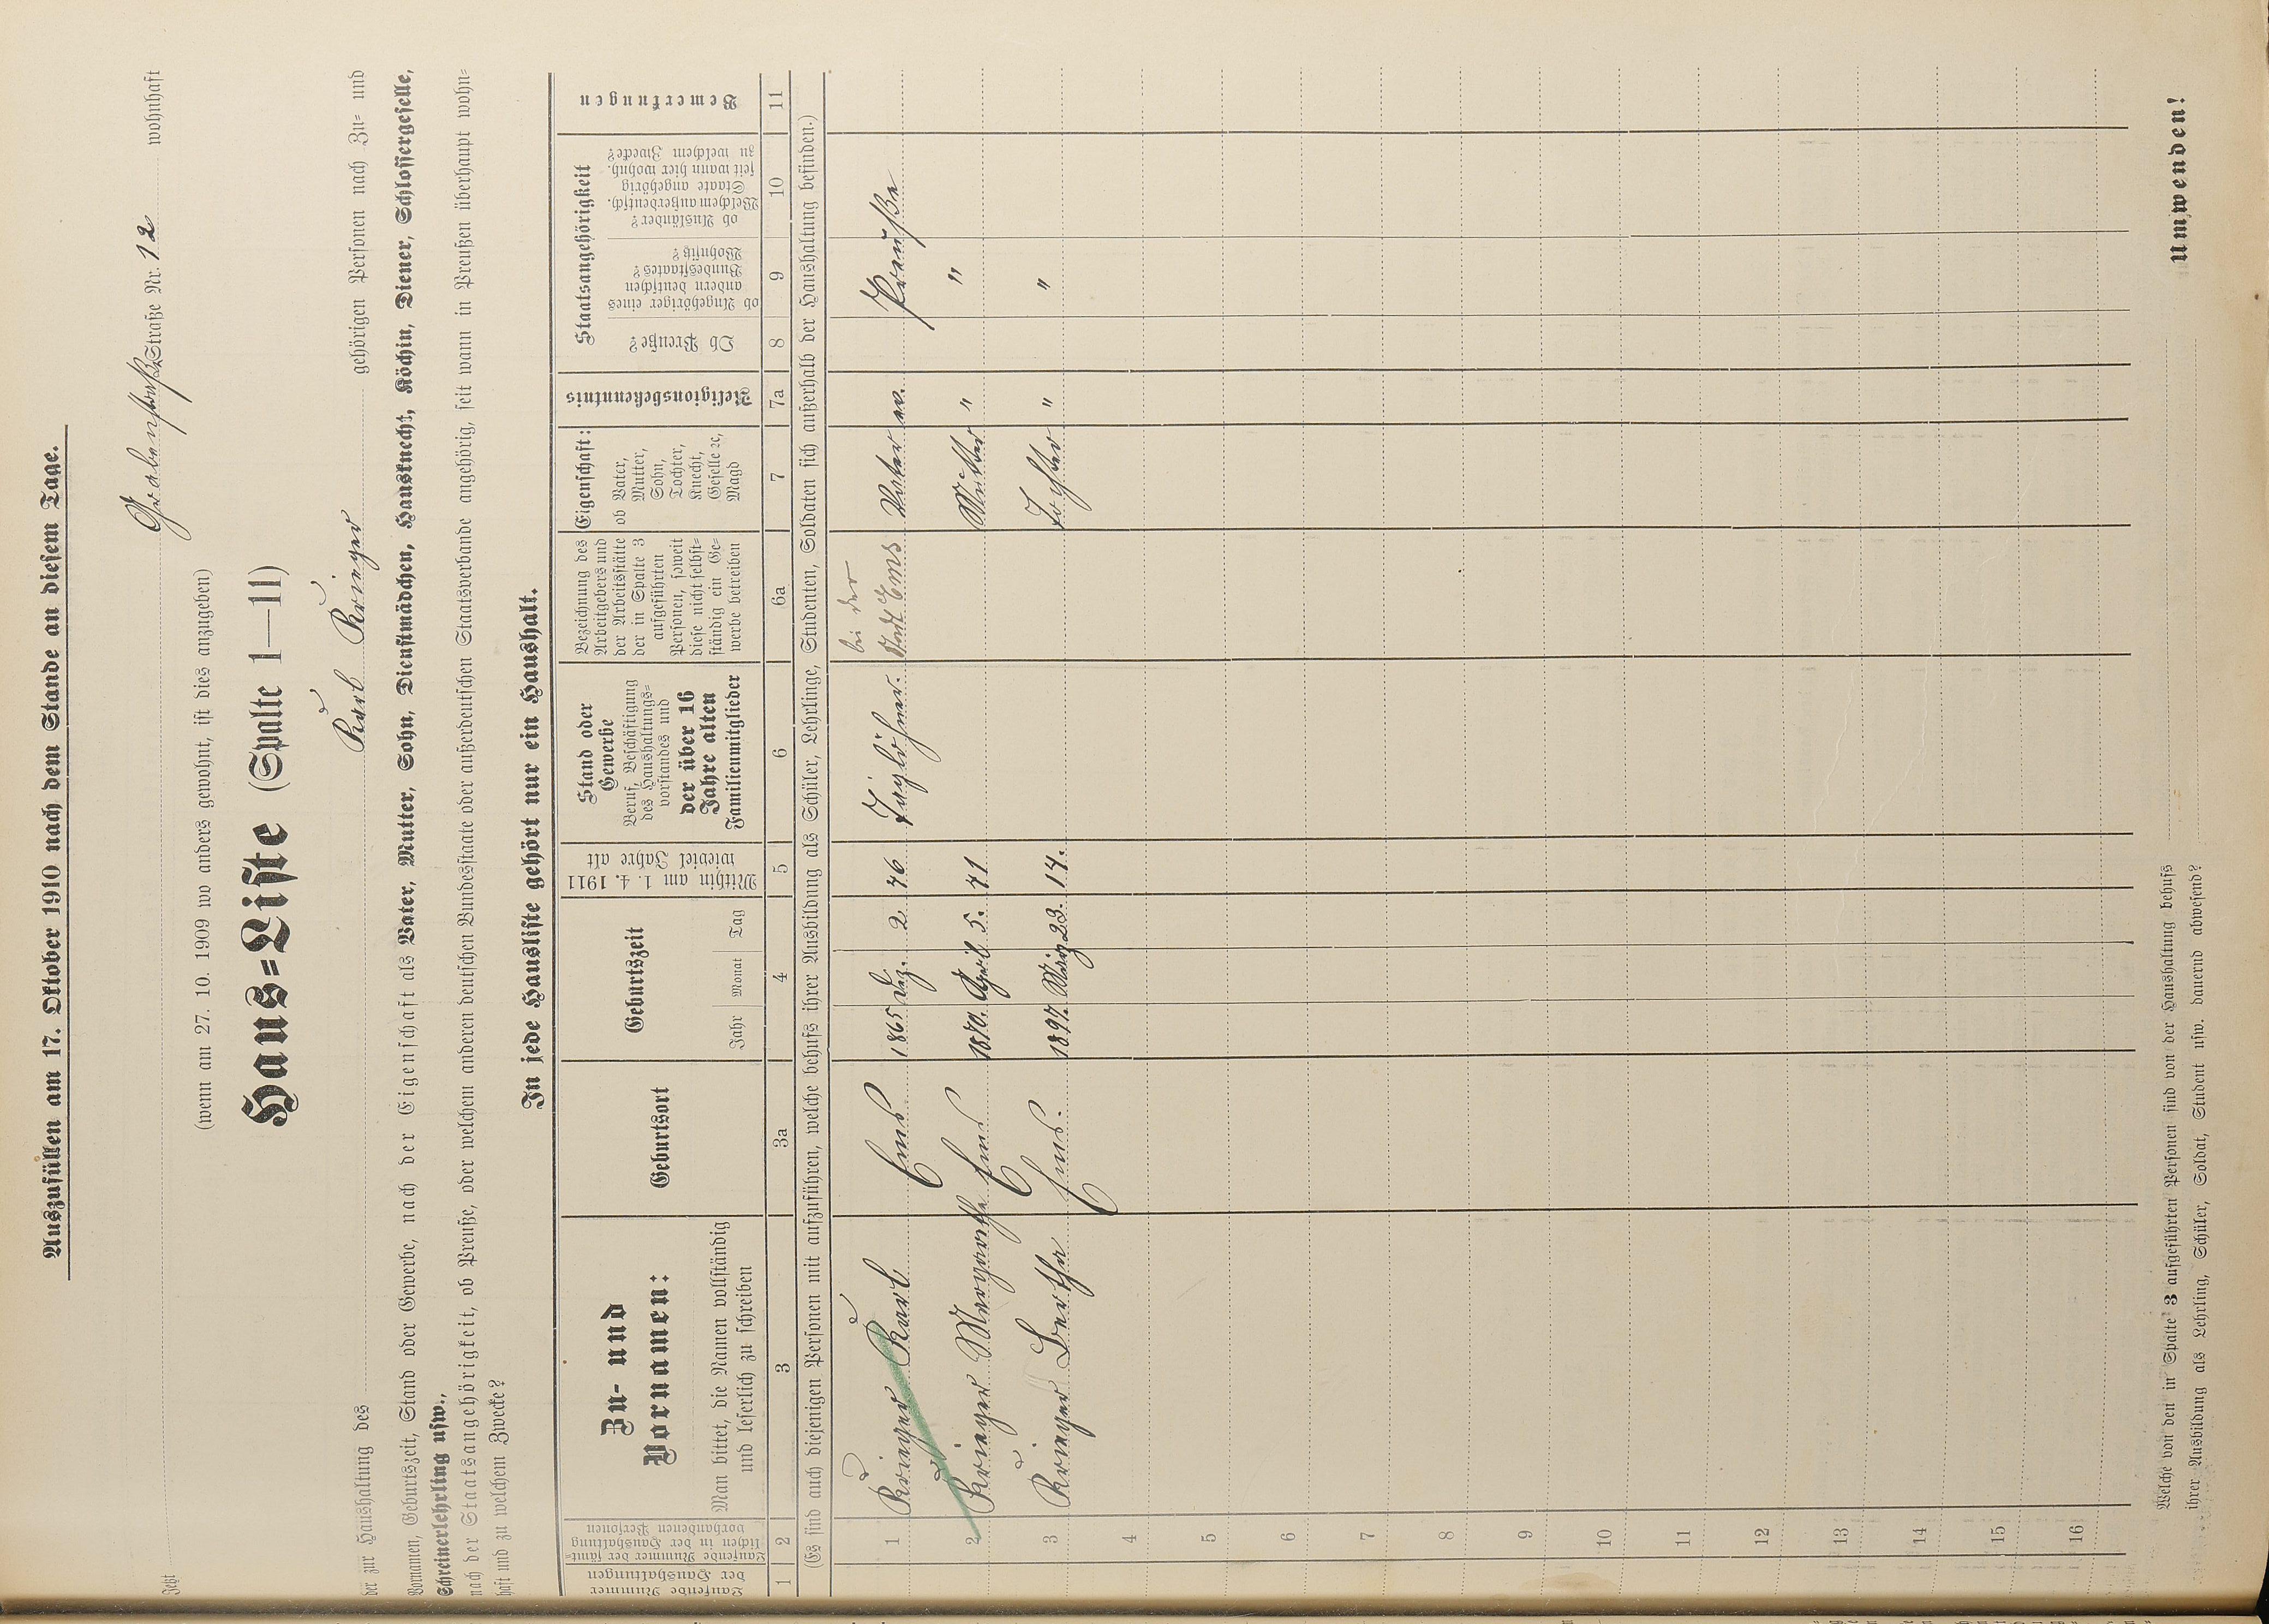 Auszufüllen am 17. Oktober 1910 nach dem Stande an diesem Tage.
Jetzt Grabenstraße Straße Nr. 12 wohnhaft
(wenn am 27. 10. 1909 wo anders gewohnt, ist dies anzugeben)
Haus=Liste (Spalte 1—11)
der zur Haushaltung des Karl Krieger gehörigen Personen nach Zu= und
Vornamen, Geburtszeit, Stand oder Gewerbe, nach der Eigenschaft als Vater, Mutter, Sohn, Dienstmädchen, Hausknecht, Köchin, Diener, Schlossergeselle,
Schreinerlehrling usw.,
nach der Staatsangehörigkeit, ob Preuße, oder welchem anderen deutschen Bundesstaate oder außerdeutschen Staatsverbande angehörig, seit wann in Preußen überhaupt wohn=
haft und zu welchem Zwecke?
In jede Hausliste gehört nur ein Haushalt.
Laufende Nummer
der Haushaltungen
Laufende Nummer der sämt=
lichen in der Haushaltung
vorhandenen Personen
Zu- und
Vornamen:
Man bittet, die Namen vollständig
und leserlich zu schreiben
Geburtsort
Geburtszeit
Jahr Monat Tag
Mithin am 1. 4. 1911
wieviel Jahre alt
Stand oder
Gewerbe
Beruf, Beschäftigung
des Haushaltungs=
vorstandes und
der über 16
Jahre alten
Familienmitglieder
Bezeichnung des
Arbeitgebers und
der Arbeitsstätte
der in Spalte 3
aufgeführten
Personen, soweit
diese nicht selbst=
ständig ein Ge=
werbe betreiben
Eigenschaft:
ob Vater,
Mutter,
Sohn,
Tochter,
Knecht,
Geselle ec,
Magd
Religionsbekenntnis
Staatsangehörigkeit
Ob Preuße?
ob Angehöriger eines
andern deutschen
Bundesstaates?
Wohnsitz?
ob Ausländer?
Welchem außerdeutsch.
Staate angehörig
seit wann hier wohnh.
zu welchem Zwecke?
Bemerkungen
1 2 3 3a 4 5 6 6a 7 7a 8 9 10 11
(Es sind auch diejenigen Personen mit aufzuführen, welche behufs ihrer Ausbildung als Schüler, Lehrlinge, Studenten, Soldaten sich außerhalb der Haushaltung befinden.)
bei der
1 Krieger Karl Ems 1865 Dez. 2 46 Taglöhner. Stadt Ems Vater ev. Preuße
2 Krieger Margarethe Ems 1870. April 5. 41 Mutter " "
3 Krieger Bertha Ems. 1897. März 23. 14. Tochter " "
4
5
6
7
8
9
10
11
12
13
14
15
16
Welche von den in Spalte 3 aufgeführten Personen sind von der Haushaltung behufs
ihrer Ausbildung als Lehrling, Schüler, Soldat, Student usw. dauernd abwesend?
Umwenden!